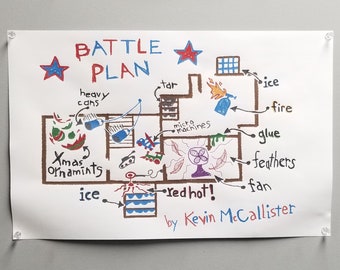 BATTLE
PLAN
heavy
cans
tar
ice
fire
micro
machines
glue
Xmas
ornamints
feathers
fan
ice
red hot!
by Kevin McCallister